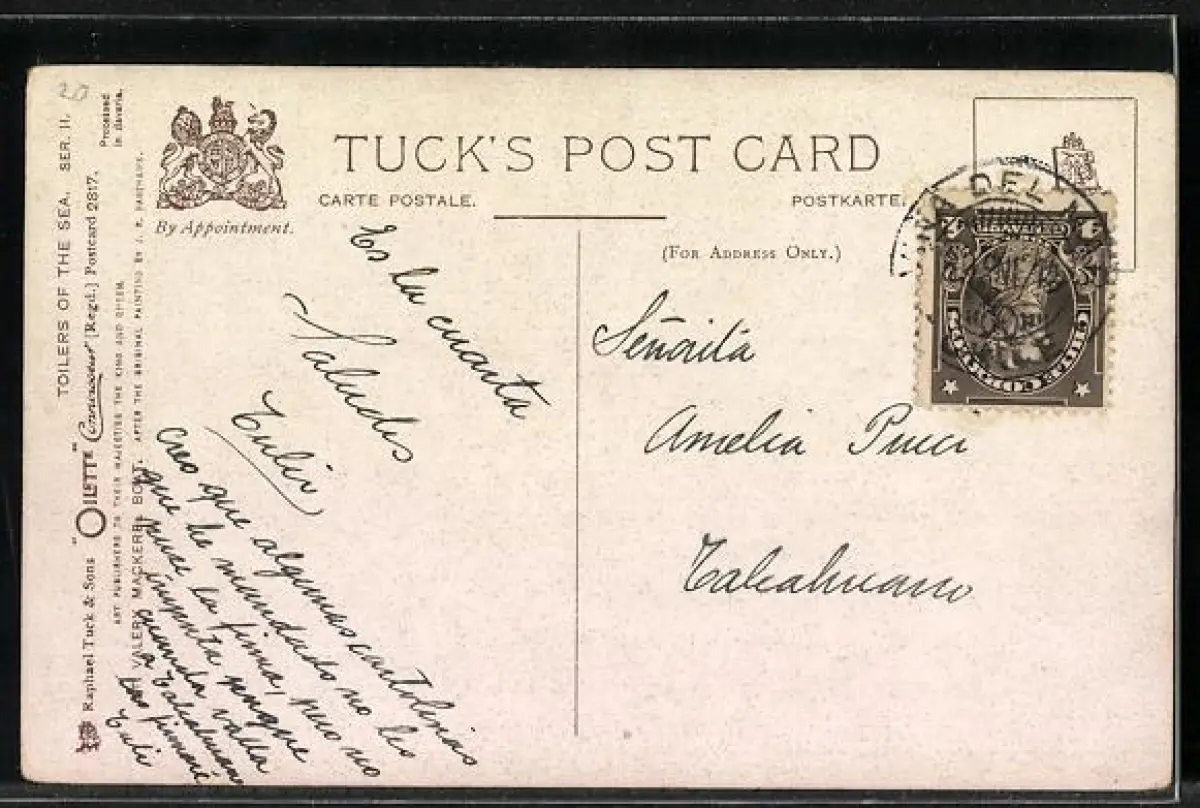 20
TOILERS OF THE SEA. SER. II.
Processed
in Bavaria.
Raphael Tuck & Sons' "OILETTE" Connoisseur [Regd.] Postcard 2817.
ART PUBLISHERS TO THEIR MAJESTIES THE KING AND QUEEN.
VALERY MACKEREL BOAT. AFTER THE ORIGINAL PAINTING BY J. R.
By Appointment.
TUCK'S POST CARD
CARTE POSTALE.
POSTKARTE.
(FOR ADDRESS ONLY.)
DEL
Es la cuarta
Saludos
Tuli
Creo que algunas cartolinas
que he mandado no les
puse la firma, pero no
importa porque
cuando valla
a Talcahuano
las firmaré
Tuli
Señorita
Amelia Pucci
Talcahuano